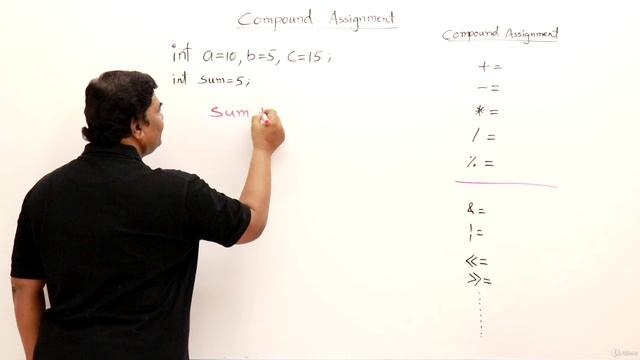 Compound Assignment
int a=10, b=5, c=15;
int sum=5;
Sum
Compound Assignment
+=
-=
*=
/=
%=
&=
¦=
<<=
>>=